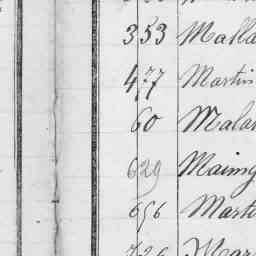 353 Malla
477 Martin
60 Mala
629 Maing
656 Mart
726 Mar